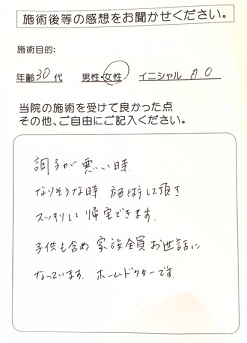 施術後等の感想をお聞かせください。
施術目的:
年齢30代 男性・女性 イニシャル A.O
当院の施術を受けて良かった点
その他、ご自由にご記入ください。
調子が悪い時
なりそうな時 施術して頂き
スッキリして帰宅できます。
子供も含め 家族全員お世話に
なっています。ホームドクターです。